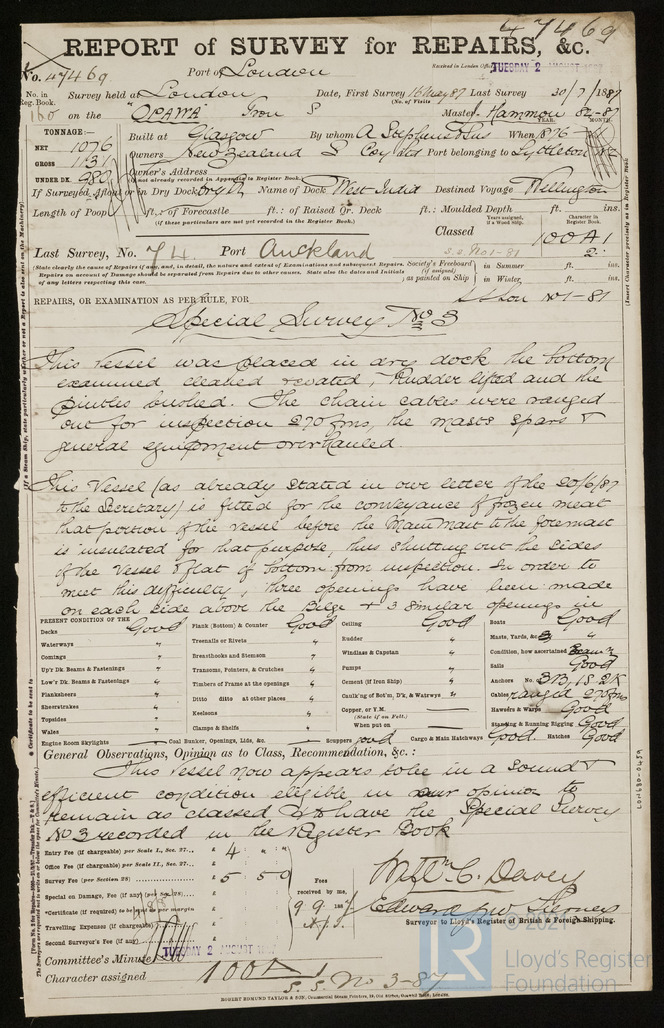 47469
REPORT of SURVEY for REPAIRS, &c.
No. 47469 Port of London Received in London Office TUESDAY 2 AUGUST 1887
No. in Reg. Book. Survey held at London Date, First Survey 16 May 87 Last Survey 30/7/1887
(No. of Visits)
160 on the "OPAWA" Iron S Master J. Hammon 82-87
YEAR. MONTH.
TONNAGE:— Built at Glasgow By whom A Stephen & Sons When 1876
NET 1076
GROSS 1131 Owners New Zealand S Coy Ltd Port belonging to Lyttleton NZ
UNDER DK. 989 Owner's Address
(if not already recorded in Appendix to Register Book.)
If Surveyed Afloat or in Dry Dock Dry Name of Dock West India Destined Voyage Wellington
Length of Poop ft.; of Forecastle ft.; of Raised Qr. Deck ft.: Moulded Depth ft. ins.
(if these particulars are not yet recorded in the Register Book).
Years assigned, if a Wood Ship. Character in Register Book.
Classed 100A1
Last Survey, No. 74 Port Auckland S.S. No 1-81
(State clearly the cause of Repairs if any, and, in detail, the nature and extent of Examinations and subsequent Repairs.
Repairs on account of Damage should be separated from Repairs due to other causes. State also the dates and Initials
of any letters respecting this case.
Society's Freeboard (if assigned) as painted on Ship in Summer ft. ins.
in Winter, ft. ins.
REPAIRS, OR EXAMINATION AS PER RULE, FOR SS Lon No 1-81
Special Survey No 3
This Vessel was placed in dry dock the bottom
examined, cleaned & coated, Rudder lifted and the
pintles bushed. The chain cables were ranged
out for inspection 270 fms, the masts spars &
general equipment overhauled.
This Vessel (as already stated in our letter of the 20/6/87
to the Secretary) is fitted for the conveyance of frozen meat
that portion of the vessel before the Main Mast to the foremast
is insulated for that purpose, thus shutting out the sides
of the vessel & flat of bottom from inspection. In order to
meet this difficulty, three openings have been made
on each side above the Bilge & 3 similar openings in
PRESENT CONDITION OF THE
Decks Good
Waterways "
Comings "
Up'r Dk. Beams & Fastenings "
Low'r Dk. Beams & Fastenings "
Planksheers "
Sheerstrakes "
Topsides "
Wales "
Plank (Bottom) & Counter Good
Treenails or Rivets "
Breasthooks and Stemson "
Transoms, Pointers, & Crutches "
Timbers of Frame at the openings "
Ditto ditto at other places "
Keelsons "
Clamps & Shelfs
Ceiling Good
Rudder "
Windlass & Capstan "
Pumps "
Cement (if Iron Ship) "
Caulk'ng of Bot'm, D'k, & Watrwys "
Copper, or Y.M.
(State if on Felt.)
When put on
Boats Good
Masts, Yards, &c "
Condition, how ascertained
Sails Good
Anchors No. 3B, 1S 2K
Cables ranged 270 fms
Hawsers & Warps Good
Standing & Running Rigging Good
Engine Room Skylights Coal Bunker, Openings, Lids, &c. Scuppers Good Cargo & Main Hatchways Good. Hatches Good
General Observations, Opinion as to Class, Recommendation, &c. :
This Vessel now appears to be in a sound &
efficient condition eligible in our opinion to
remain as classed & to have the Special Survey
No 3 recorded in the Register Book
Entry Fee (if chargeable) per Scale I., Sec. 27... £ 4
Office Fee (if chargeable) per Scale II., Sec. 27... £
Survey Fee (per Section 28) £ 5 5 0
Special on Damage, Fee (if any) (per Sec. 28): £
*Certificate (if required) to be as per margin
Travelling Expenses (if chargeable) £
Second Surveyor's Fee (if any) £
Fees received by me,
Edward Tierney
Surveyor to Lloyd's Register of British & Foreign Shipping.
Committee's Minute TUESDAY 2 AUGUST 1887
Character assigned 100A1
S.S. No 3-87
ROBERT EDMUND TAYLOR & SON, Commercial Steam Printers, 19, Old Street, Goswell Road, London.
LON680-0459
© 2021
LR
Lloyd's Register
Foundation